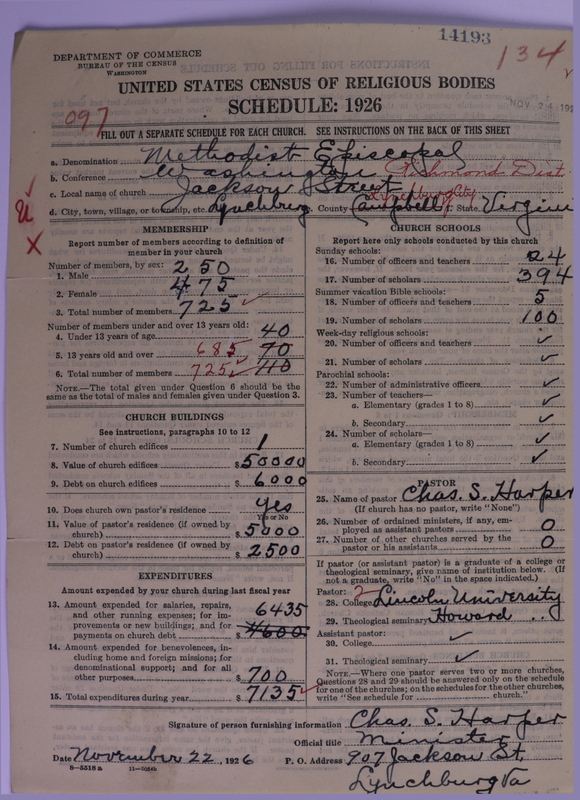 14193
134
DEPARTMENT OF COMMERCE
BUREAU OF THE CENSUS
WASHINGTON
UNITED STATES CENSUS OF RELIGIOUS BODIES
SCHEDULE: 1926
NOV 24 192
097
FILL OUT A SEPARATE SCHEDULE FOR EACH CHURCH. SEE INSTRUCTIONS ON THE BACK OF THIS SHEET
a. Denomination Methodist Episcopal
b. Conference Washington Richmond Dist.
c. Local name of church Jackson Street
Lynchburg City
d. City, town, village, or township, etc. Lynchburg County Campbell State Virginia
X
MEMBERSHIP
Report number of members according to definition of
member in your church
Number of members, by sex:
1. Male 250
2. Female 475
3. Total number of members 725
Number of members under and over 13 years old:
4. Under 13 years of age 40
5. 13 years old and over 685 70
6. Total number of members 725 110
NOTE.—The total given under Question 6 should be the
same as the total of males and females given under Question 3.
CHURCH BUILDINGS
See instructions, paragraphs 10 to 12
7. Number of church edifices 1
8. Value of church edifices $50000
9. Debt on church edifices $6000
10. Does church own pastor's residence yes
Yes or No
11. Value of pastor's residence (if owned by
church) $5000
12. Debt on pastor's residence (if owned by
church) $2500
EXPENDITURES
Amount expended by your church during last fiscal year
13. Amount expended for salaries, repairs,
and other running expenses; for im-
provements or new buildings; and for
payments on church debt $ 6435 4600
14. Amount expended for benevolences, in-
cluding home and foreign missions; for
denominational support; and for all
other purposes $700
15. Total expenditures during year $7135
CHURCH SCHOOLS
Report here only schools conducted by this church
Sunday schools:
16. Number of officers and teachers 24
17. Number of scholars 394
Summer vacation Bible schools:
18. Number of officers and teachers 5
19. Number of scholars 100
Week-day religious schools:
20. Number of officers and teachers ✓
21. Number of scholars ✓
Parochial schools:
22. Number of administrative officers ✓
23. Number of teachers—
a. Elementary (grades 1 to 8) ✓
b. Secondary ✓
24. Number of scholars—
a. Elementary (grades 1 to 8) ✓
b. Secondary ✓
PASTOR
25. Name of pastor Chas. S. Harper
(If church has no pastor, write "None")
26. Number of ordained ministers, if any, em-
ployed as assistant pastors 0
27. Number of other churches served by the
pastor or his assistants 0
If pastor (or assistant pastor) is a graduate of a college or
theological seminary, give name of institution below. (If
not a graduate, write "No" in the space indicated.)
Pastor: 2
28. College Lincoln University
29. Theological seminary Howard "
Assistant pastor:
30. College ✓
31. Theological seminary ✓
NOTE.—Where one pastor serves two or more churches,
Questions 28 and 29 should be answered only on the schedule
for one of the churches; on the schedules for the other churches,
write "See schedule for church."
Signature of person furnishing information Chas. S. Harper
Official title Minister
Date November 22, 1926 P. O. Address 907 Jackson St.
8—5518a
Lynchburg Va